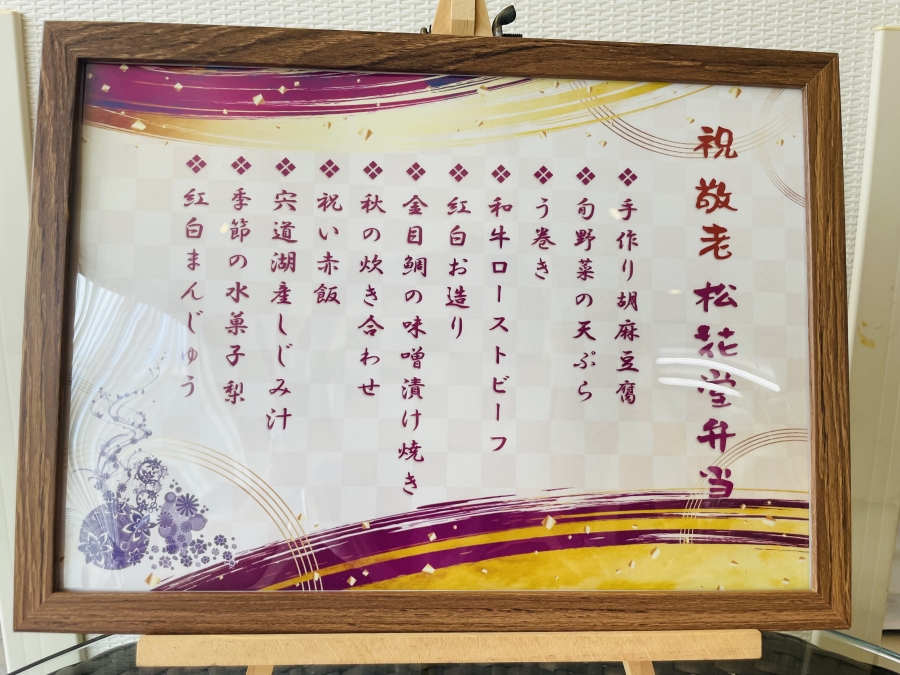 祝敬老 松花堂弁当
❖手作り胡麻豆腐
❖旬野菜の天ぷら
❖う巻き
❖和牛ローストビーフ
❖紅白お造り
❖金目鯛の味噌漬け焼き
❖秋の炊き合わせ
❖祝い赤飯
❖宍道湖産しじみ汁
❖季節の水菓子 梨
❖紅白まんじゅう